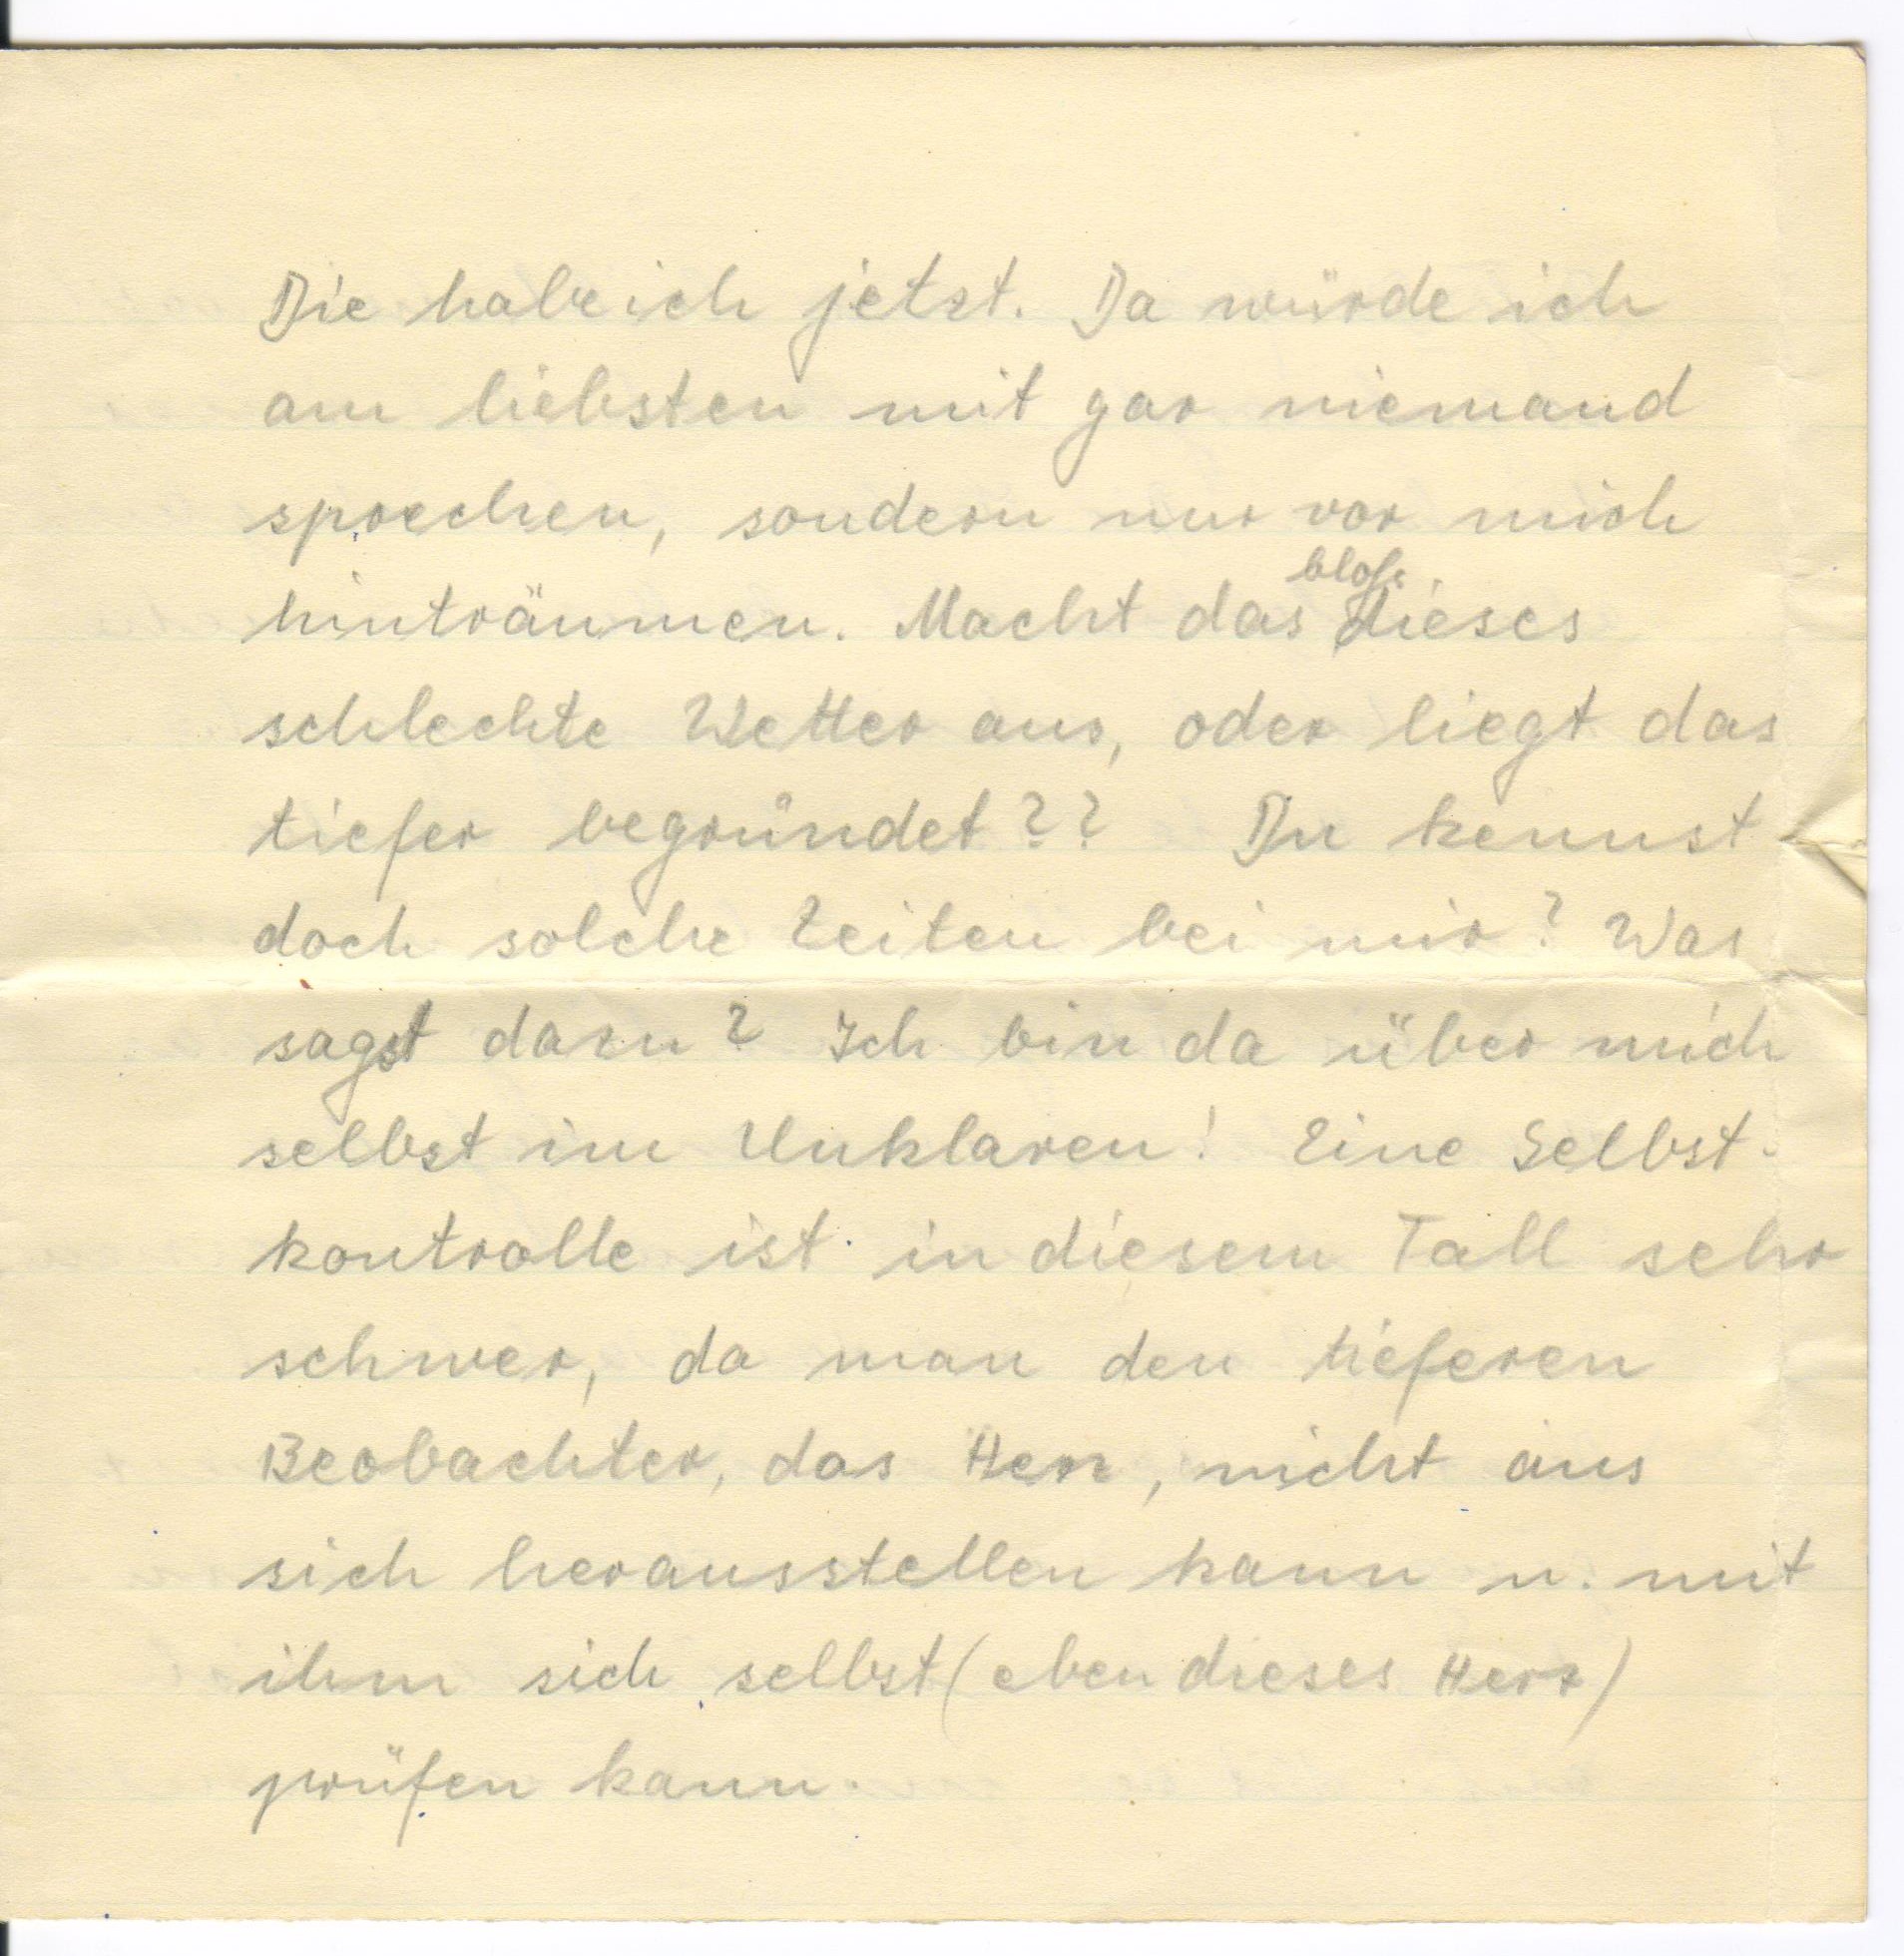 Die habe ich jetzt. Da würde ich
am liebsten mit gar niemand
sprechen, sondern nur vor mich
hinträumen. Macht das bloß dieses
schlechte Wetter aus, oder liegt das
tiefer begründet?? Du kennst
doch solche Zeiten bei mir? Was
sagst dazu? Ich bin da über mich
selbst im Unklaren! Eine Selbst-
kontrolle ist in diesem Fall sehr
schwer, da man den tieferen
Beobachter, das Herz, nicht aus
sich herausstellen kann u. mit
ihm sich selbst (eben dieses Herz)
prüfen kann.